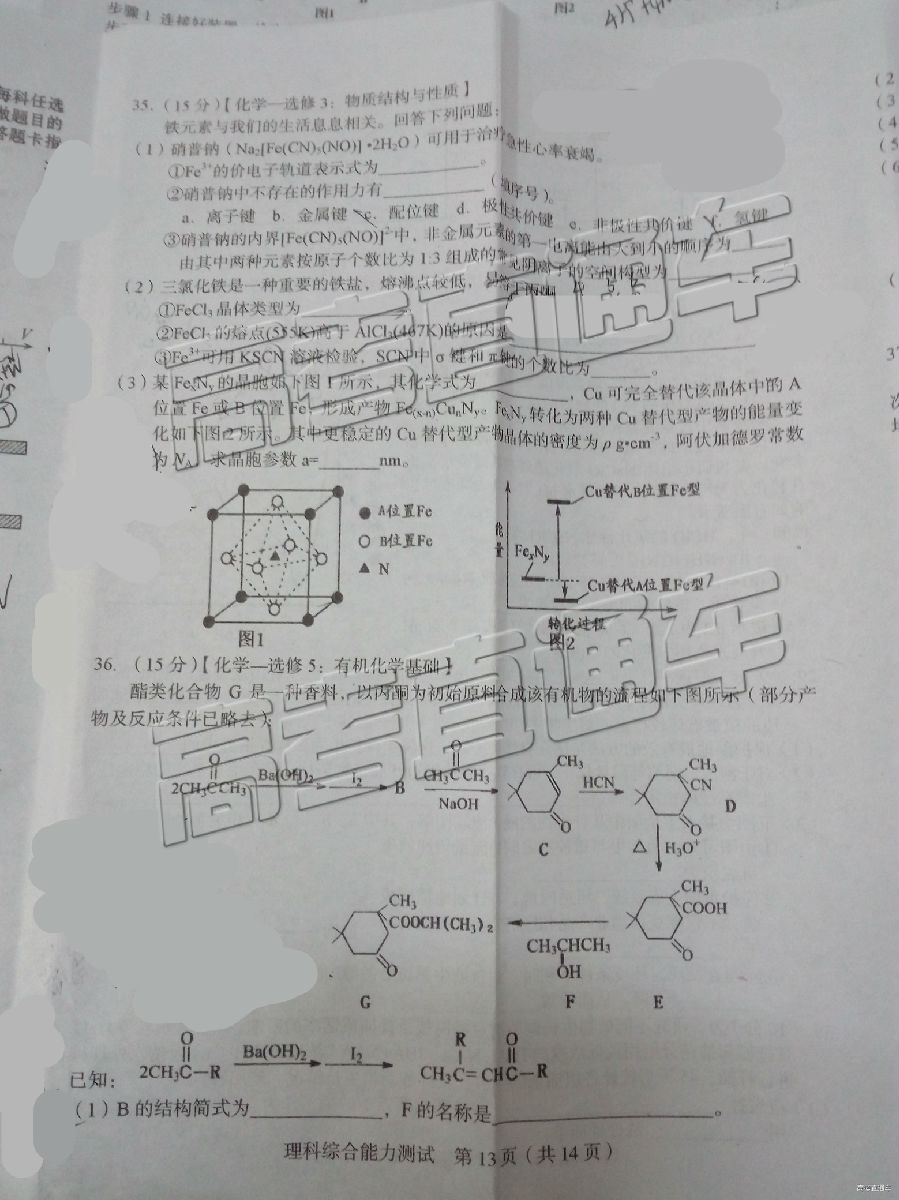 步骤1 连接好装置
图1
图2
每科任选
做题目的
答题卡指
35.(15分)【化学—选修3:物质结构与性质】
铁元素与我们的生活息息相关。回答下列问题:
(1)硝普钠(Na₂[Fe(CN)₅(NO)]•2H₂O)可用于治疗急性心率衰竭。
①Fe³⁺的价电子轨道表示式为________。
②硝普钠中不存在的作用力有________(填序号)。
a. 离子键 b. 金属键 c. 配位键 d. 极性共价键 e. 非极性共价键 f. 氢键
③硝普钠的内界[Fe(CN)₅(NO)]²⁻中,非金属元素的第一电离能由大到小的顺序为
由其中两种元素按原子个数比为1:3组成的常见阴离子的空间构型为________。
(2)三氯化铁是一种重要的铁盐,熔沸点较低,易溶于
①FeCl₃晶体类型为________。
②FeCl₃的熔点(555K)高于AlCl₃(467K)的原因是________
③Fe³⁺可用KSCN溶液检验,SCN⁻中σ键和π键的个数比为________。
(3)某FeₓNᵧ的晶胞如下图1所示,其化学式为________,Cu可完全替代该晶体中的A
位置Fe或B位置Fe,形成产物Fe₍ₓ₋ₙ₎CuₙNᵧ。FeₓNᵧ转化为两种Cu替代型产物的能量变
化如下图2所示。其中更稳定的Cu替代型产物晶体的密度为ρ g•cm⁻³,阿伏加德罗常数
为N_A,求晶胞参数a=________nm。
A位置Fe
B位置Fe
N
图1
能量
Cu替代B位置Fe型
FeₓNᵧ
Cu替代A位置Fe型
转化过程
图2
36.(15分)【化学—选修5:有机化学基础】
酯类化合物G是一种香料,以丙酮为初始原料合成该有机物的流程如下图所示(部分产
物及反应条件已略去):
O
2CH₃CCH₃ Ba(OH)₂ I₂ B
O
CH₃CCH₃
NaOH
CH₃
O
C
HCN
CH₃
CN
O
D
△ H₃O⁺
CH₃
COOH
O
E
CH₃CHCH₃
OH
F
CH₃
COOCH(CH₃)₂
O
G
已知:
O
2CH₃C—R Ba(OH)₂ I₂
R O
CH₃C=CHC—R
(1)B的结构简式为________,F的名称是________。
理科综合能力测试 第13页(共14页)
高考直通车
高考直通车